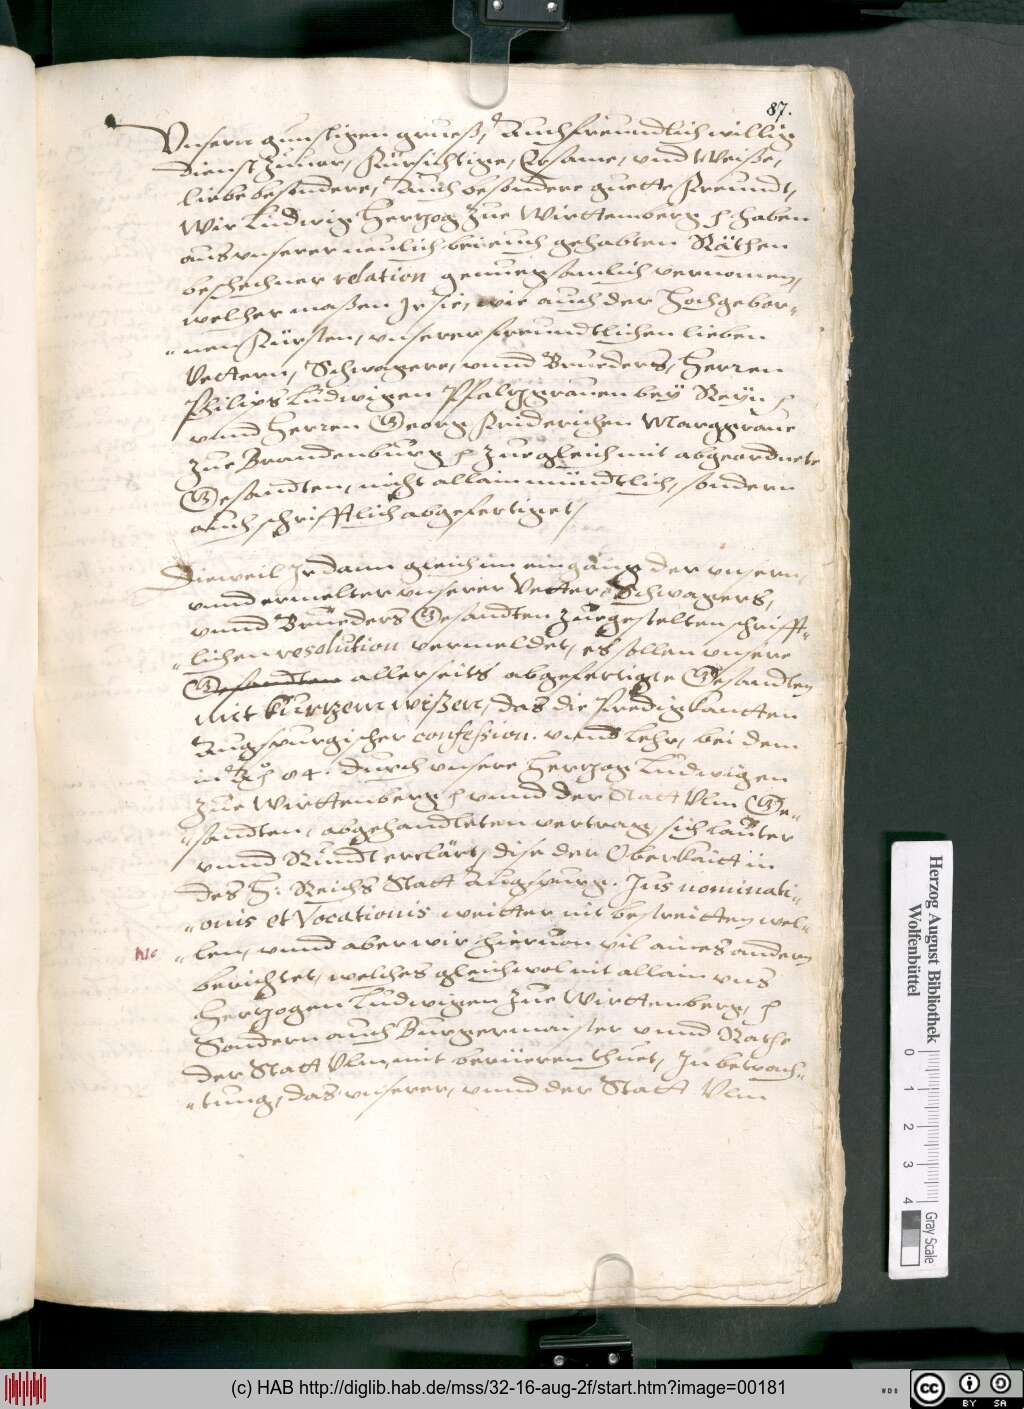 87.
Vnsern günstigen grueß, Auch freundtlich willig
dienst zuuor, Fürsichtige, Ersame, vnd Weiße,
liebe besondere, Auch besondere guette Freundt,
Wir Ludwig Hertzog zue Wirttemberg haben
aus vnserer neulich bei euch gehabten Räthen
beschechner relation genuegsamlich vernomen,
welcher maßen Ir sie, wie auch der Hochgebor-
nen Fürsten, vnserer freundtlichen lieben
Vettern, Schwagers, vnnd Brueders, Herren
Philips Ludwigen Pfaltzgrauen bey Reyn
vnnd Herren Georg Friderichen Marggraue
zue Brandenburg zurgleich mit abgeordnete
Gesandten, nicht allain mündtlich, sondern
auch schrifftlich abgefertiget,
Dieweil Ir dann gleich im eingang der vnsern,
vnnd ermelter vnserer Vetter, Schwagers,
vnnd Brueders Gesandten zuegestelten schrifft-
lichen resolution vermeldet, es sollen vnsere
Gesandten allerseits abgefertigte Gesandten
mit kurtzem wißen, das die Predigkantten
Augspurgischer confession. vnnd lehr, bei dem
in 84. durch vnsere Hertzog Ludwigen
zue Wirttenberg vnnd der Statt Vlm Ge-
sandten, abgehandleten vertrag, sich lauter
vnnd Rundt erclärt, dise der Oberkaitt in
des H: Reichs Statt Augspurg. Jus nominati-
onis et Vocationis weitter nit bestreitten wel-
len, vnnd aber wir hieruon vil aines andern
berichtet, welches gleichwol nit allain vns
Hertzogen Ludwigen zue Wirttenberg,
Sondern auch Burgermaister vnnd Rathe
der Statt Vlm, mit berüeren thuet, In betrach-
tung, das vnserer, vnnd der Statt Vlm
Herzog August Bibliothek
Wolfenbüttel
0 1 2 3 4
Gray Scale
(c) HAB http://diglib.hab.de/mss/32-16-aug-2f/start.htm?image=00181
WDB
cc BY SA